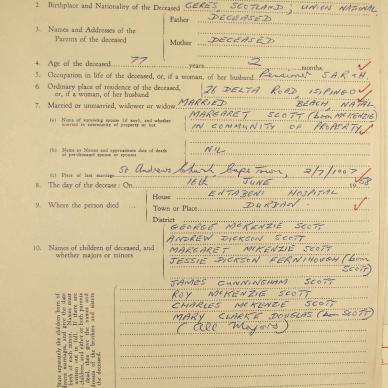 2. Birthplace and Nationality of the Deceased CERES, SCOTLAND; UNION NATIONAL
Father DECEASED
3. Names and Addresses of the Parents of the deceased
Mother DECEASED
4. Age of the deceased 77 years 2 months.
5. Occupation in life of the deceased, or, if a woman, of her husband Pensioner S.A.R.&H.
6. Ordinary place of residence of the deceased, or, if a woman, of her husband 26 DELTA ROAD, ISIPINGO BEACH, NATAL
7. Married or unmarried, widower or widow MARRIED
(a) Name of surviving spouse (if any), and whether married in community of property or not MARGARET SCOTT (born McKENZIE)
IN COMMUNITY OF PROPERTY
(b) Name or Names and approximate date of death of pre-deceased spouse or spouses NIL
(c) Place of last marriage St Andrews Church, Cape Town, 2/7/1907
8. The day of the decease: On 16th JUNE 1958
House ENTABENI HOSPITAL
9. Where the person died Town or Place DURBAN
District
10. Names of children of deceased, and whether majors or minors
GEORGE McKENZIE SCOTT
ANDREW DICKSON SCOTT
MARGARET McKENZIE SCOTT
JESSIE DICKSON FERNIHOUGH (born SCOTT)
JAMES CUNNINGHAM SCOTT
ROY McKENZIE SCOTT
CHARLES McKENZIE SCOTT
MARY CLARKE DOUGLAS (born SCOTT)
(All Majors)